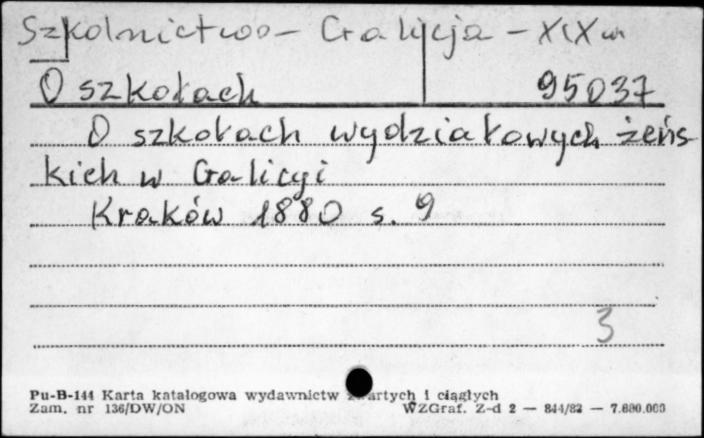 Szkolnictwo - Galicja - XIX w.
O szkołach 95037
O szkołach wydziałowych żeńs-
kich w Galicyi
Kraków 1880 s. 9
3
Pu-B-144 Karta katalogowa wydawnictw zwartych i ciągłych
Zam. nr 136/DW/ON WZGraf. Z-d 2 — 844/82 — 7.600.000